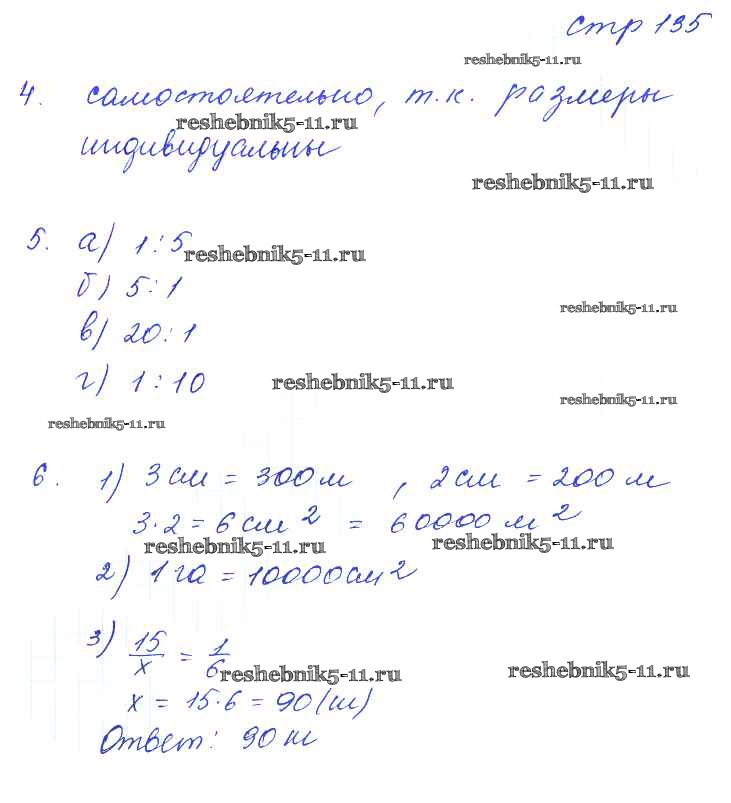 стр 135
reshebnik5-11.ru
4. самостоятельно, т.к. размеры
reshebnik5-11.ru
индивидуальны
reshebnik5-11.ru
5. а) 1:5
reshebnik5-11.ru
б) 5:1
reshebnik5-11.ru
в) 20:1
г) 1:10
reshebnik5-11.ru
reshebnik5-11.ru
reshebnik5-11.ru
6. 1) 3 см = 300 м , 2 см = 200 м
3·2 = 6 см² = 60000 м²
reshebnik5-11.ru reshebnik5-11.ru
2) 1 га = 10000 см²
3) 15/x = 1/6
reshebnik5-11.ru reshebnik5-11.ru
x = 15·6 = 90 (т)
Ответ: 90 т